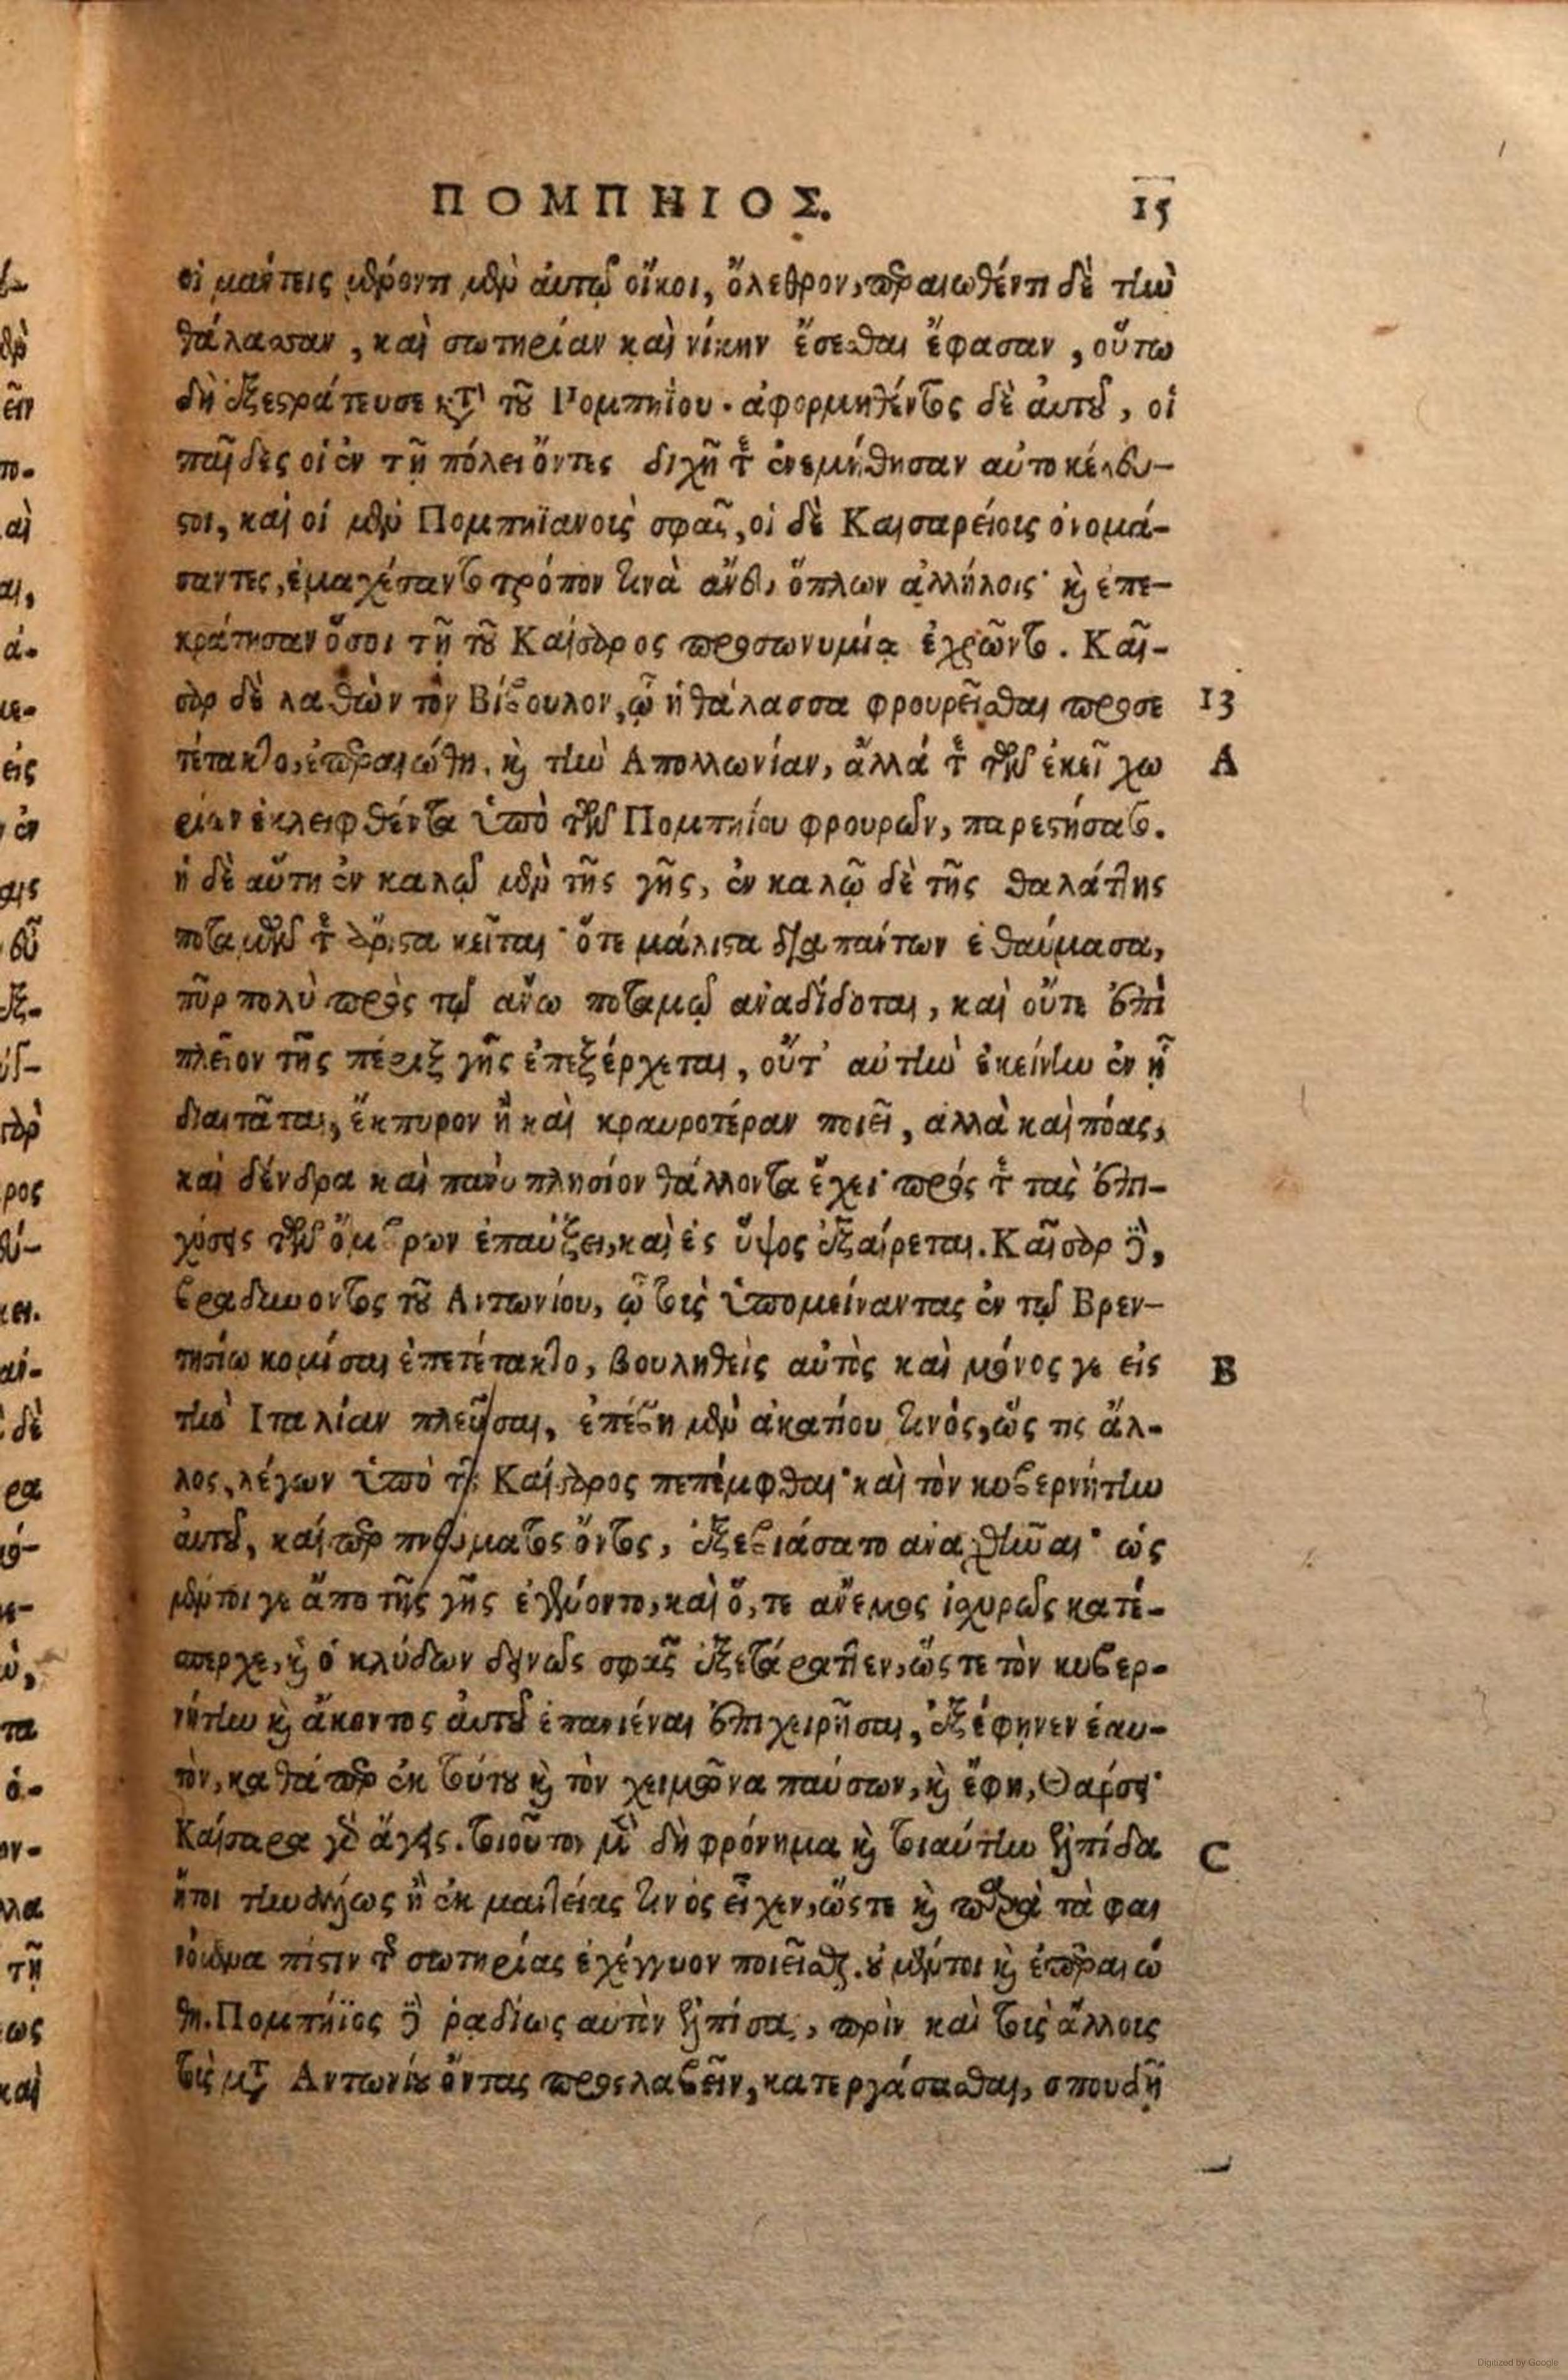 ΠΟΜΠΗΙΟΣ. 15
οἱ μάντεις μένοντι μὲν αὐτῷ οἴκοι, ὄλεθρον, περαιωθέντι δὲ τὴν
θάλασσαν, καὶ σωτηρίαν καὶ νίκην ἔσεσθαι ἔφασαν, οὕτω
δὴ ἐξεστράτευσε κατὰ τοῦ Πομπηΐου. ἀφορμηθέντος δὲ αὐτοῦ, οἱ
παῖδες οἱ ἐν τῇ πόλει ὄντες διχῆ τε ἐνεμήθησαν αὐτοκέλευ-
στοι, καὶ οἱ μὲν Πομπηϊανοὺς σφᾶς, οἱ δὲ Καισαρείους ὀνομά-
σαντες, ἐμαχέσαντο τρόπον τινὰ ἄνευ ὅπλων ἀλλήλοις· καὶ ἐπε-
κράτησαν ὅσοι τῇ τοῦ Καίσαρος προσωνυμίᾳ ἐχρῶντο. Καῖ-
σαρ δὲ λαθὼν τὸν Βίβουλον, ᾧ ἡ θάλασσα φρουρεῖσθαι προσε 13
τέτακτο, ἐπεραιώθη. καὶ τὴν Απολλωνίαν, ἄλλά τε τῶν ἐκεῖ χω A
ρίων ἐκλειφθέντα ὑπὸ τῶν Πομπηίου φρουρῶν, παρεστήσατο.
ἡ δὲ αὕτη ἐν καλῷ μὲν τῆς γῆς, ἐν καλῷ δὲ τῆς θαλάττης
ποταμῶν τε ἄριστα κεῖται· ὅτε μάλιστα διὰ πάντων ἐθαύμασα,
πῦρ πολὺ πρὸς τῷ ἄνω ποταμῷ ἀναδίδοται, καὶ οὔτε ἐπὶ
πλεῖον τῆς πέριξ γῆς ἐπεξέρχεται, οὔτ' αὐτὴν ἐκείνην ἐν ᾗ
διαιτᾶται, ἔκπυρον ἢ καὶ κραυροτέραν ποιεῖ, ἀλλὰ καὶ πόας,
καὶ δένδρα καὶ πάνυ πλησίον θάλλοντα ἔχει· πρός τε τὰς ἐπι-
χύσεις τῶν ὄμβρων ἐπαύξει, καὶ ἐς ὕψος ἐξαίρεται. Καῖσαρ δὲ,
βραδύνοντος τοῦ Αντωνίου, ᾧ τοὺς ὑπομείναντας ἐν τῷ Βρεν-
τησίῳ κομίσαι ἐπετέτακτο, βουληθεὶς αὐτὸς καὶ μόνος γε εἰς B
τὴν Ιταλίαν πλεῦσαι, ἐπέβη μὲν ἀκατίου τινός, ὥς τις ἄλ-
λος, λέγων ὑπὸ τοῦ Καίσαρος πεπέμφθαι· καὶ τὸν κυβερνήτην
αὐτοῦ, καίπερ πνεύματος ὄντος, ἐξεβιάσατο ἀναχθῆναι· ὡς
μέντοι γε ἄπο τῆς γῆς ἐγένοντο, καὶ ὅ, τε ἄνεμος ἰσχυρῶς κατέ-
σπερχε, καὶ ὁ κλύδων δεινῶς σφᾶς ἐξετάραττεν, ὥς τε τὸν κυβερ-
νήτην καὶ ἄκοντος αὐτοῦ ἐπανιέναι ἐπιχειρῆσαι, ἐξέφηνεν ἑαυ-
τὸν, καθάπερ ἐκ τούτου καὶ τὸν χειμῶνα παύσων, καὶ ἔφη, Θάρσει·
Καίσαρα γὰρ ἄγεις. τοιοῦτον μὲν δὴ φρόνημα καὶ τοιαύτην ἐλπίδα C
ἤτοι τηνάλλως ἢ ἐκ μαντείας τινὸς εἶχεν, ὥς τε καὶ παρὰ τὰ φαι
νόμενα πίστιν τῆς σωτηρίας ἐχέγγυον ποιεῖσθαι. οὐ μέντοι καὶ ἐπεραιώ
θη. Πομπήϊος δὲ ῥαδίως αὐτὸν ἐλπίσας, πρὶν καὶ τοὺς ἄλλους
τοὺς μετὰ Αντωνίου ὄντας προςλαβεῖν, κατεργάσασθαι, σπουδῇ